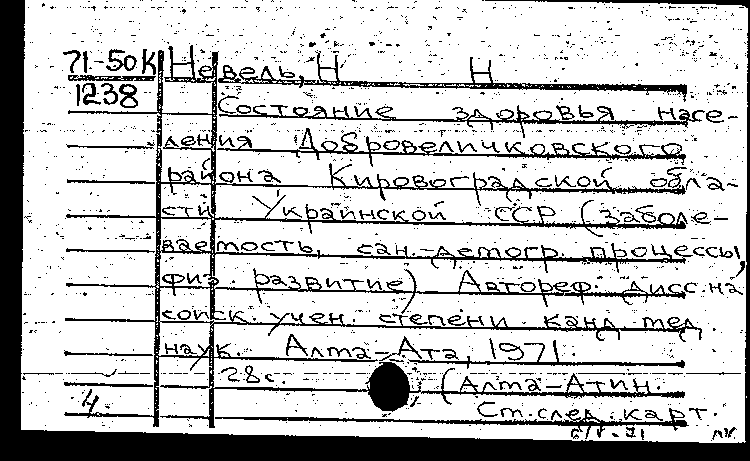 71-50К Невель, Н Н
1238
Состояние здоровья насе-
ления Добровеличковского
района Кировоградской обла-
сти Украинской ССР (заболе-
ваемость, сан.-демогр. процессы,
физ. развитие) Автореф. дисс. на
соиск. учен. степени канд. мед.
наук. Алма-Ата, 1971.
28 с. (Алма-Атин.
4 См. след. карт.